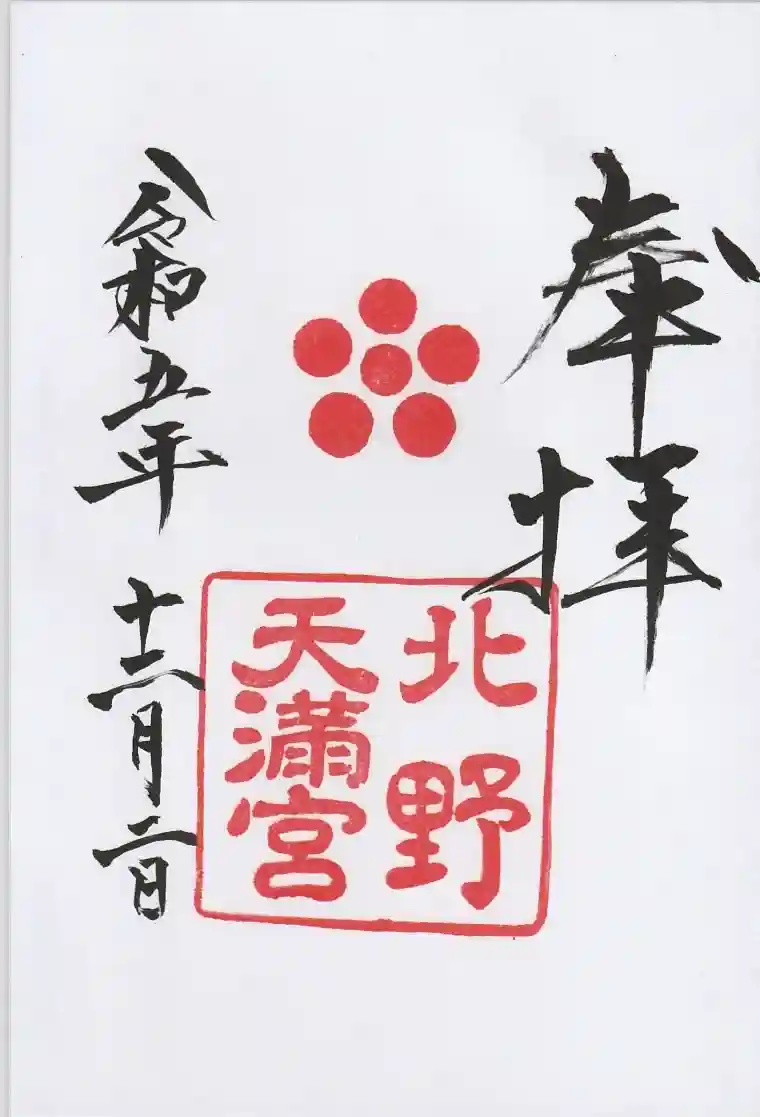 奉拝
北野
天満宮
令和五年十二月二日